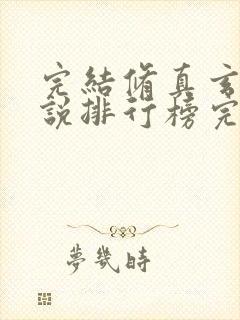 完結脩真玄
說排行榜完
夢幾時